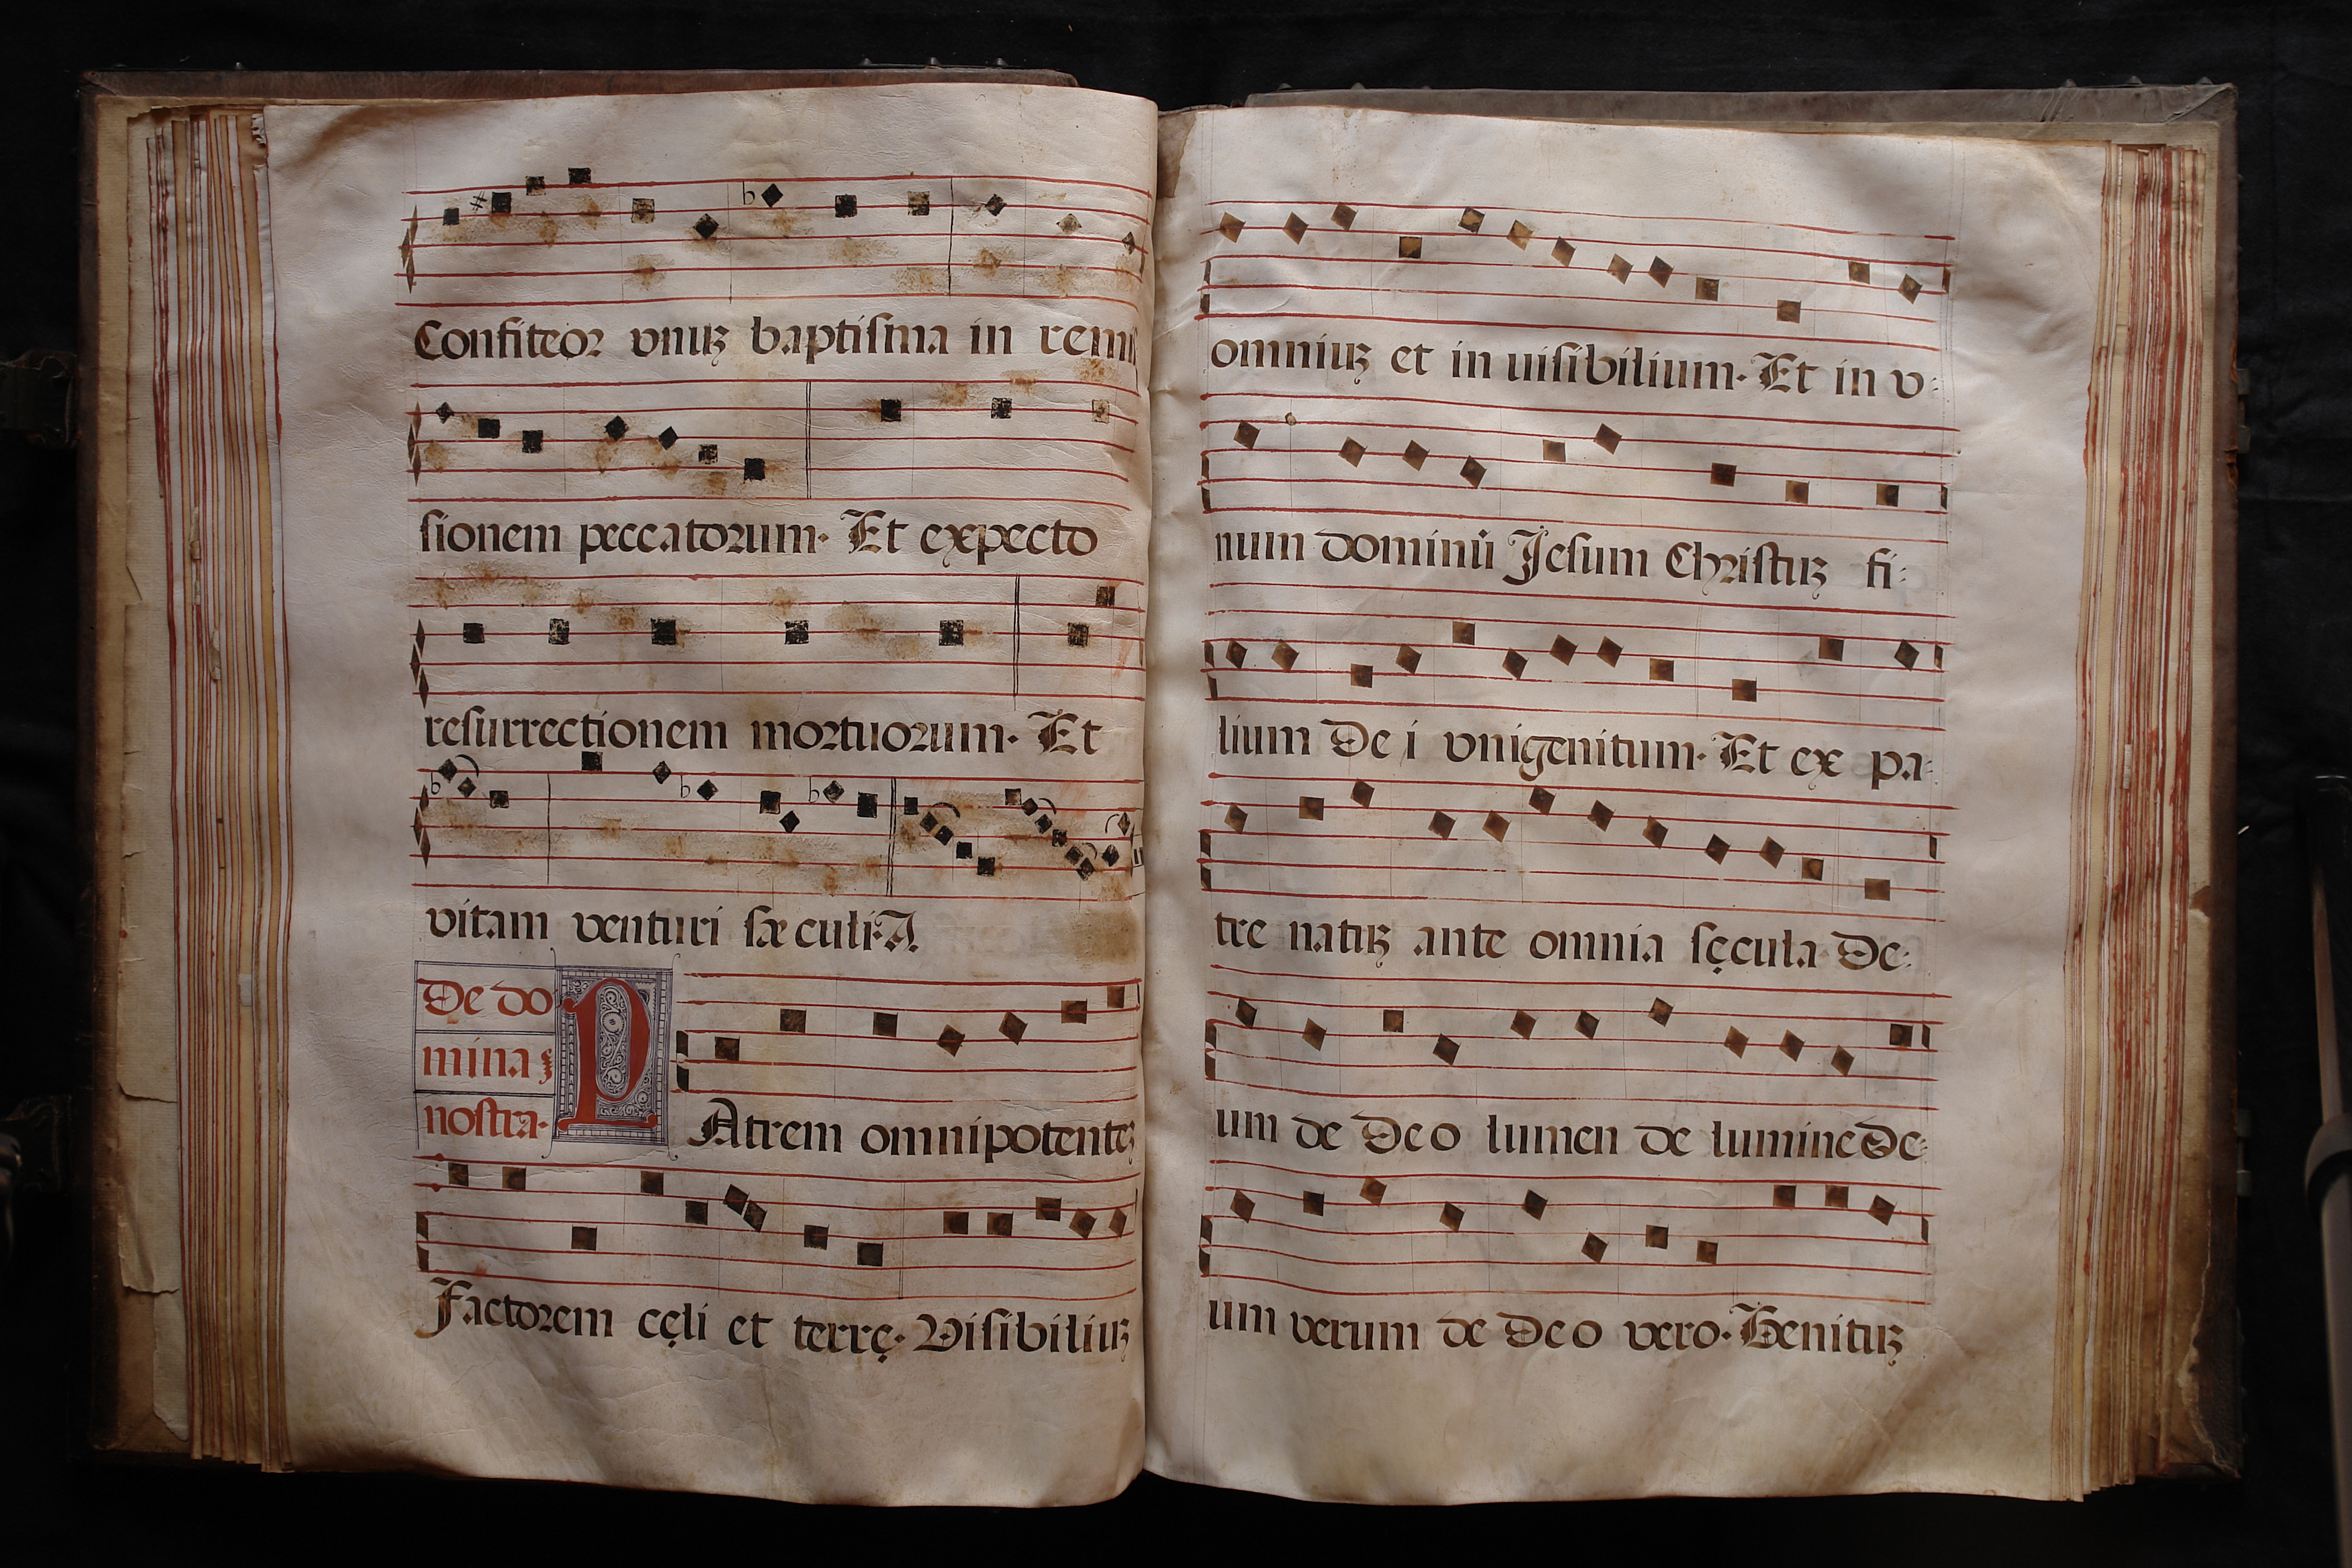 Confiteor vnuȝ baptiſma in remiſ
ſionem peccatorum· Et expecto
reſurrectionem mortuorum· Et
vitam venturi ſæculi·A.
De do
minaȝ
noſtra·
PAtrem omnipotenteȝ
Factorem cęli et terrę· Viſibiliuȝ
omniuȝ et in uiſibilium· Et in v:
num dominū Jeſum Chriſtuȝ fi:
lium De i vnigenitum· Et ex pa:
tre natuȝ ante omnia ſęcula De:
um de Deo lumen de lumine De:
um verum de Deo vero· Genituȝ